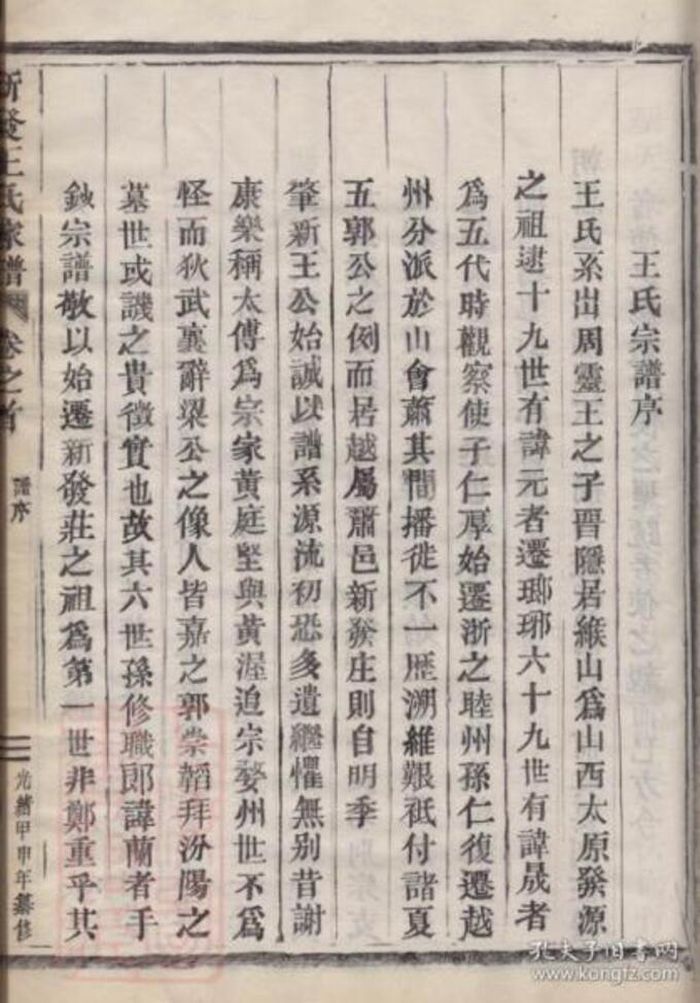 王氏宗譜序
王氏系出周靈王之子晋隱居緱山爲山西太原發源
之祖逮十九世有諱元者遷瑯琊六十九世有諱晟者
爲五代時觀察使子仁厚始遷浙之睦州孫仁復遷越
州分派於山會蕭其間播徙不一歷溯維艱祇付諸夏
五郭公之例而居越屬蕭邑新發庄則自明季
肇新王公始誠以譜系源流初恐多遺繼懼無别昔謝
康樂稱太傅爲宗家黄庭堅與黄渥追宗婺州世不爲
怪而狄武襄辭梁公之像人皆嘉之郭崇韜拜汾陽之
墓世或譏之貴徵實也故其六世孫修職郎諱蘭者手
鈔宗譜敬以始遷新發莊之祖爲第一世非鄭重乎其
新發王氏家譜 卷之首
譜序
二
光緒甲申年纂修
孔夫子旧书网
www.kongfz.com